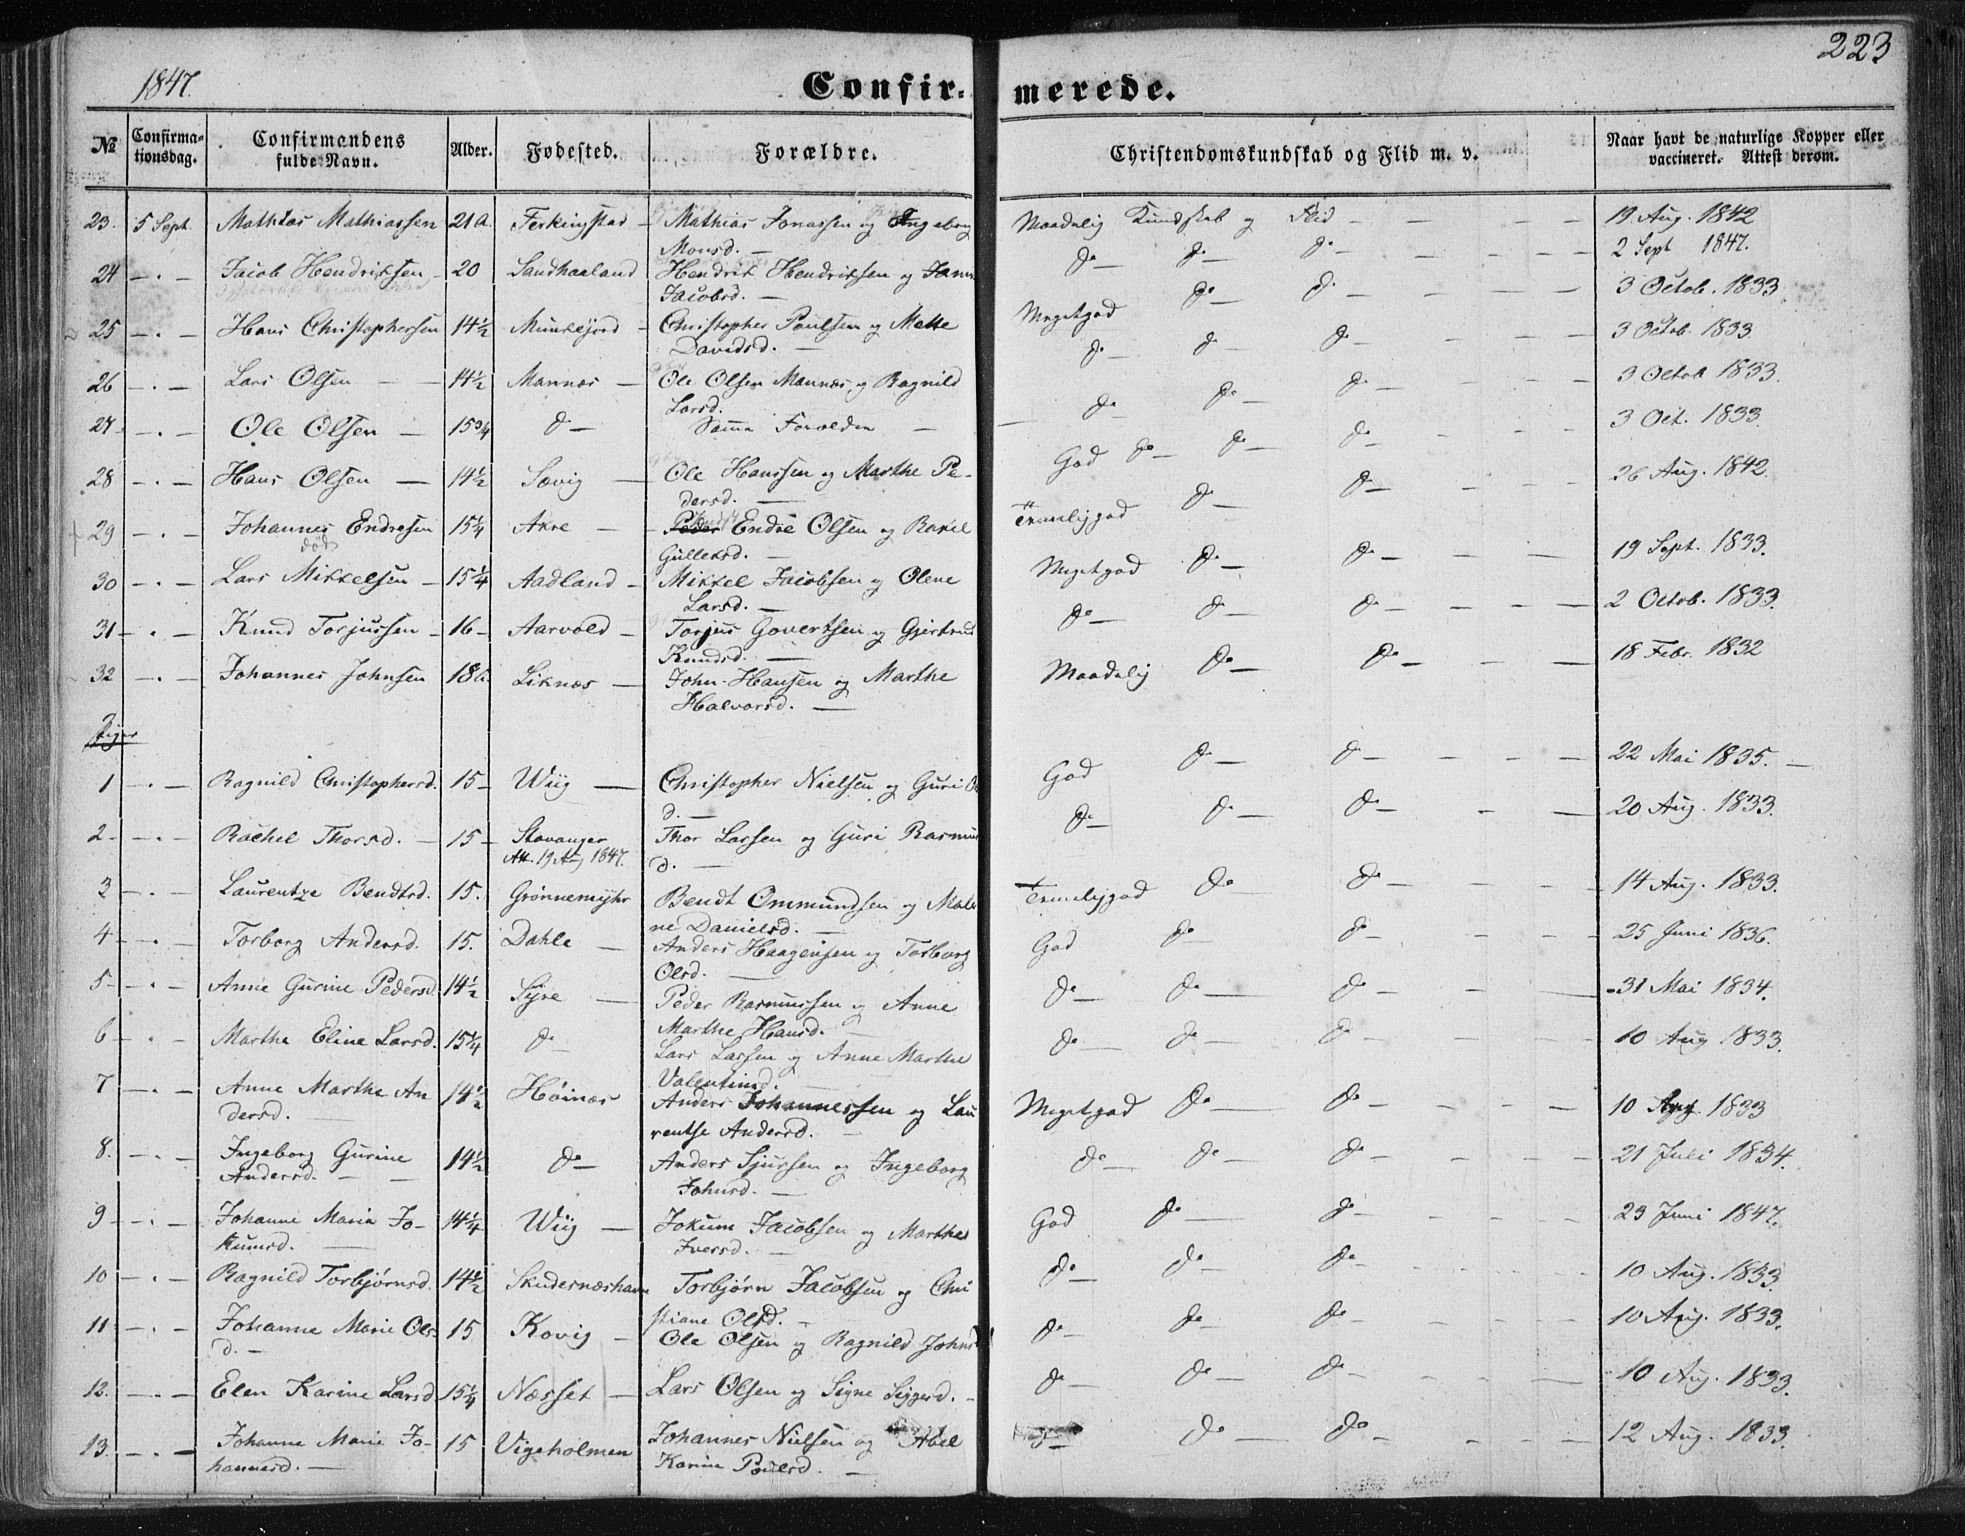 1847.
223
Confir-
merede.
№
Confirma-
tionsdag.
Confirmandens
fulde Navn.
Alder.
Fødested.
Forældre.
Christendomskundskab og Flid m. v.
Naar havt de naturlige Kopper eller
vaccineret. Attest derom.
23. 5 Sept. Mathias Mathiassen 21 a. Ferkingstad — Mathias Jonassen og Ingeborg Maadelig Kundskab og Flid — — — — 19 Aug. 1842
Monsd. —
24 — . — Jacob Hendriksen — 20 Sandhaaland Hendrik Hendriksen og Do — Do — Do — — — — 2 Sept 1847.
Jacobsd. —
25 — . — Hans Christophersen 14½ Munkejord — Christopher Poulsen og Mette Megetgod Do — Do — — — — 3 Octob. 1833
Davidsd. —
26 — . — Lars Olsen — — 14½ Mannes — Ole Olsen Mannes, og Ragnild Do — Do — Do — — — — 3 Octob. 1833.
Larsd.
27 — . — Ole Olsen — 15¾ Do — Samme Forældre — Do — Do — Do — — — — 3 Octob 1833.
28 — . — Hans Olsen — 14½ Sævig — Ole Hanssen og Marthe Pe- God Do — Do — Do — — — — 3 Oct. 1833.
dersd. —
29 — . — Johannes Endresen 15¼ Akre — Peder Endre Olsen og Rakel Temmeliggod Do — Do — — — — 26 Aug. 1842.
død Gulleksd. —
30 — . — Lars Mikkelsen — 15¼ Aadland — Mikkel Jacobsen og Olene Megetgod Do — Do — — — — 19 Sept. 1833.
Larsd. —
31 — . — Knud Torjussen — 16 — Aarvold — Torjus Govertsen og Gjertrud Do — Do — Do — — — — 2 Octob. 1833.
Knudsd. —
32 — . — Johannes Johnsen 18 a. Liknes — John Hansen og Marthe Maadelig Do — Do — — — — 18 Febr. 1832
Halvorsd. —
Piger
1 — . — Ragnild Christophersd. 15 — Wiig — Christopher Nielsen og Guri God Do — Do — — — — 22 Mai 1835. —
d. —
2 — . — Rachel Thorsd. — 15 — Stavanger Thor Larsen og Guri Rasmus Do — Do — Do — — — — 20 Aug. 1833.
Att. 19 Aug 1847. d. —
3 — . — Laurentze Bendtsd. 15. Grønnemyhr Bendt Ommundsen og Male Temmeliggod Do — Do — — — — 14 Aug. 1833.
ne Danielsd. —
4 — . — Torborg Andersd. 15. Dahle — Anders Haagensen og Torborg God Do — Do — — — — 25 Juni 1836.
Olsd. —
5 — . — Anne Gurine Pedersd. 14½ Syre — Peder Rasmussen og Anne Do — Do — Do — — — — 31 Mai 1834.
Marthe Hansd. —
6 — . — Marthe Eline Larsd. 15¼ Do — Lars Larsen og Anne Marthe Do — Do — Do — — — — 10 Aug 1833.
Valentinsd. —
7 — . — Anne Marthe An 14½ Høines Anders Johannessen og Lau Megetgod Do — Do — — — — 10 Aug. 1833
dersd. — rentse Andersd. —
8. — . — Ingeborg Gurine 14½ Do — Anders Sjursen og Ingeborg Do — Do — Do — — — — 21 Juli 1834.
Andersd. — Johnsd. —
9 — . — Johanne Maria Jo- 14¼ Wiig — Jokum Jacobsen og Marthe God Do — Do — — — — 23 Juni 1847.
kumsd. — Iversd. —
10 — . — Ragnild Torbjørnsd. 14½ Skudesnæshavn Torbjørn Jacobsen og Chri Do — Do — Do — — — — 10 Aug. 1833.
stiane Olsd. —
11 — . — Johanne Marie Ols 15 Kovig — Ole Olsen og Ragnild Johns Do — Do — Do — — — — 10 Aug. 1833.
d. —
12. — . — Elen Karine Larsd 15¼ Næsset — Lars Olsen og Signe Siggesd. — Do — Do — Do — — — — 10 Aug. 1833.
13. — . — Johanne Marie Jo- 15 Vigeholmen Johannes Nielsen og Abel Do — Do — Do — — — — 12 Aug. 1833.
hannesd. — Karine Poulsd. —